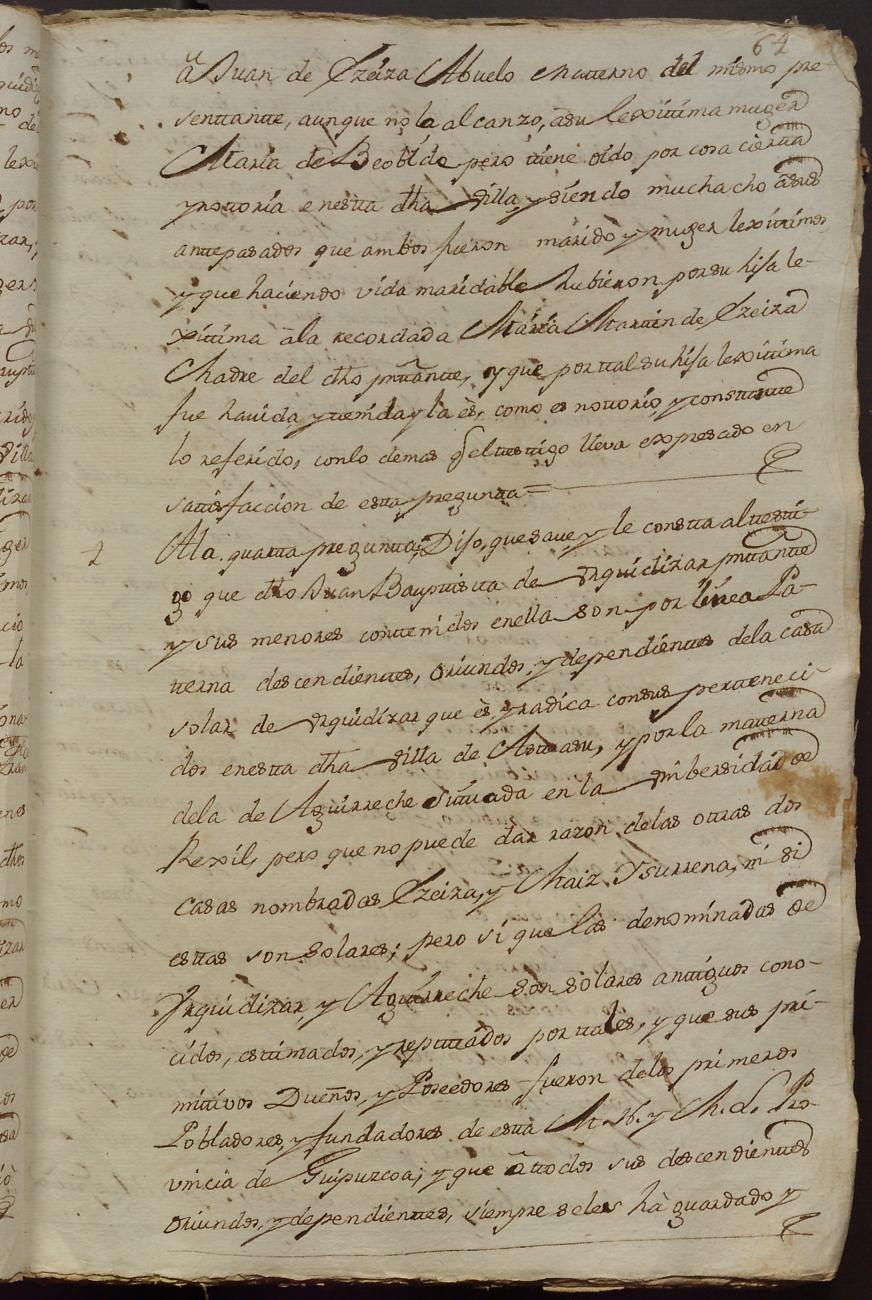 64
à Juan de Yzeiza Abuelo Materno del mismo pre-
senttantte, aunque no la alcanzo, a su lexittima muger
Maria de Beobide pero ttiene oido por cosa ciertta
y nottoria en estta dha Villa, y siendo muchacho à sus
anttepasados que ambos fueron marido y muger lexittimos
y que haciendo vida maridable hubieron por su hija le-
xittima à la recordada Maria Marttin de Yzeiza
Madre del dho prttãntte, y que por ttal su hija lexittima
fue havida y ttenida y la ès, como es nottorio y consttantte
lo referido, con lo demas q el testtigo lleva expresado en
sattisfaccion de estta preguntta =
4
A la quartta preguntta, Dijo, que save y le constta al testti-
go que dho Juan Bauptistta de Vrquidizar prttãntte
y sus menores conttenidos en ella son por linea Pa-
tterna descendienttes, oriundos, y dependienttes de la casa
solar de Vrquidizar que ès y radica con sus pertteneci-
dos en estta dha Villa de Astteasu, y por la matterna
de la de Aguirreche sittuada en la Vnibersidad de
Rexil, pero que no puede dar razon de las ottras dos
casas nombradas Yzeiza, y Maiz Ysurrena, ni si
esttas son solares; pero si que las denominadas de
Vrquidizar, y Aguirreche son solares anttiguos cono-
cidos, esttimados, y reputtados por ttales, y que sus pri-
mittivos Dueños, y Poseedores fueron de los primeros
Pobladores, y fundadores de estta M. N. y M. L. Pro-
vincia de Guipuzcoa; y que à ttodos sus descendienttes
oriundos, y dependienttes, siempre seles hà guardado y